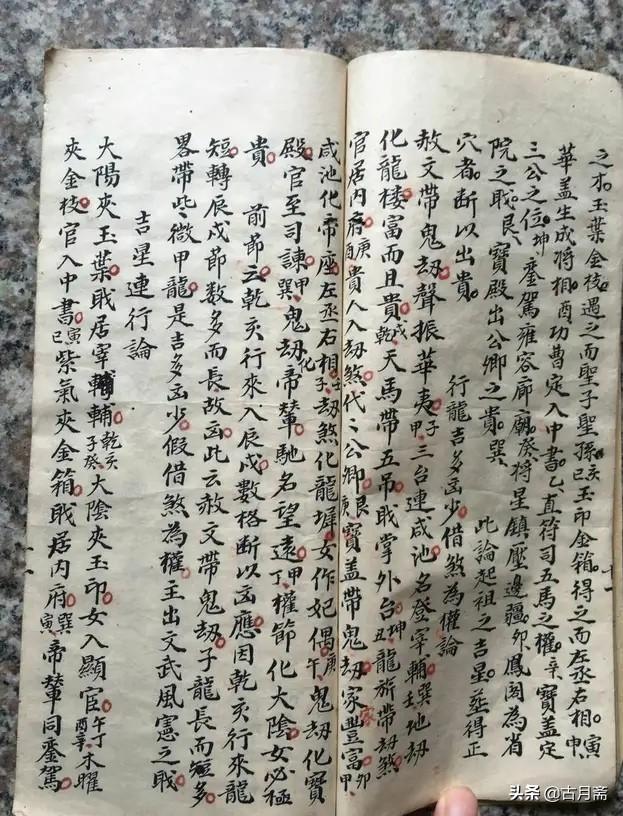 之才玉葉金枝遇之而聖子聖孫亥巳玉印金箱得之而左丞右相申寅
華盖生成將相酉功曹定入中書乙直符司五馬之權辛寶盖定
三公之位坤鑾駕雍容廊廟癸將星鎮壓邊疆卯鳳閣為省
院之職艮寶殿出公卿之貴巽此論起祖之吉星並得正
穴者断以出貴
行龍吉多凶少借煞為權論
赦文帶鬼劫聲振華夷甲子三台連咸池名登宰輔壬巽地劫
化龍楼富而且貴乾戌天馬帶五吊戝掌外台丑坤龍旂帶劫煞
官居内府酉庚貴人入劫煞代〻公卿庚艮寶盖帶鬼劫家豊富甲卯
咸池化帝座左丞右相子壬劫煞化龍墀女作妃偶午庚鬼劫化寶
殿官至司諫巽甲鬼劫化帝輦馳名望遠甲丁權節化大陰女必極
貴 前節云乾亥行來入辰戌數格断以凶應因乾亥行來龍
短轉辰戌節數多而長故凶此云赦文帶鬼劫子龍長而短多
畧帶些〻微甲龍是吉多凶少假借煞為權主出文武風憲之戝
吉星連行論
大陽夾玉葉戝居宰輔子癸乾亥大陰夾玉印女入顯官酉辛午丁木曜
夾金枝官入中書巳寅紫氣夾金箱戝居内府寅巽帝輦同鑾駕
十一
家
头条 @古月斋